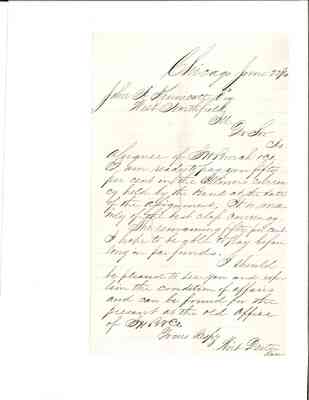 Chicago June
John F. Kennicott Esq
West Northfield
Ill
Dr Sir
As
Assignee of
I am ready to pay you fifty
per cent in the Illinois Curren-
cy held by the Bank at the date
of the assignment. It is
of the best class currency.
The remaining fifty per cent
I hope to be able to pay before
long in par funds.
I should
be pleased to see you and exp-
lain the condition of affairs
and can be found for the
present at the old office
of & Co
Yours Respy